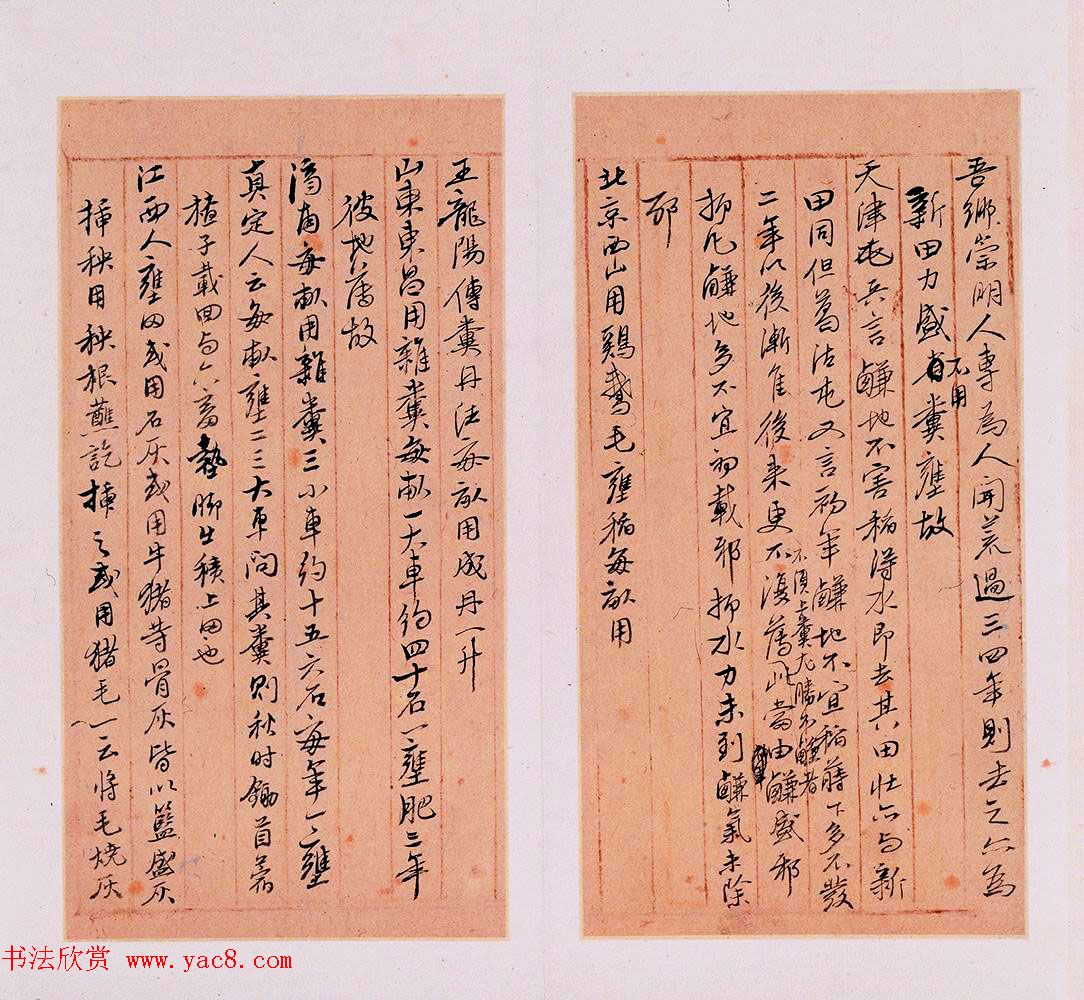 吾鄉崇明人專為人開荒過三四年則去之亦為
新田力盛不用糞壅故
天津屯兵言鹻地不害稻得水即去其田壯亦与新
田同但葛沽屯又言初年鹻地不宜稻蒔下多不發
二年以後漸佳後来更不須上糞尤勝不鹻者
復舊此當由鹻盛邪
抑凡鹻地多不宜初載邪抑水力未到鹻氣未除
邪
北京西山用鷄鵞毛壅稻每畝用
王龍陽傳糞丹法每畝用成丹一升
山東東昌用雜糞每畝一大車約四十石一壅肥三年
彼地薄故
濟南每畝用雜糞三小車約十五六石每年一壅
真定人云每畝壅二三大車問其糞則秋時鋤苜蓿
楂子載回与六畜墊脚生積上田也
江西人壅田或用石灰或用牛猪等骨灰皆以籃盛灰
插秧用秧根蘸訖插之或用猪毛一云将毛燒灰
书法欣赏 www.yac8.com